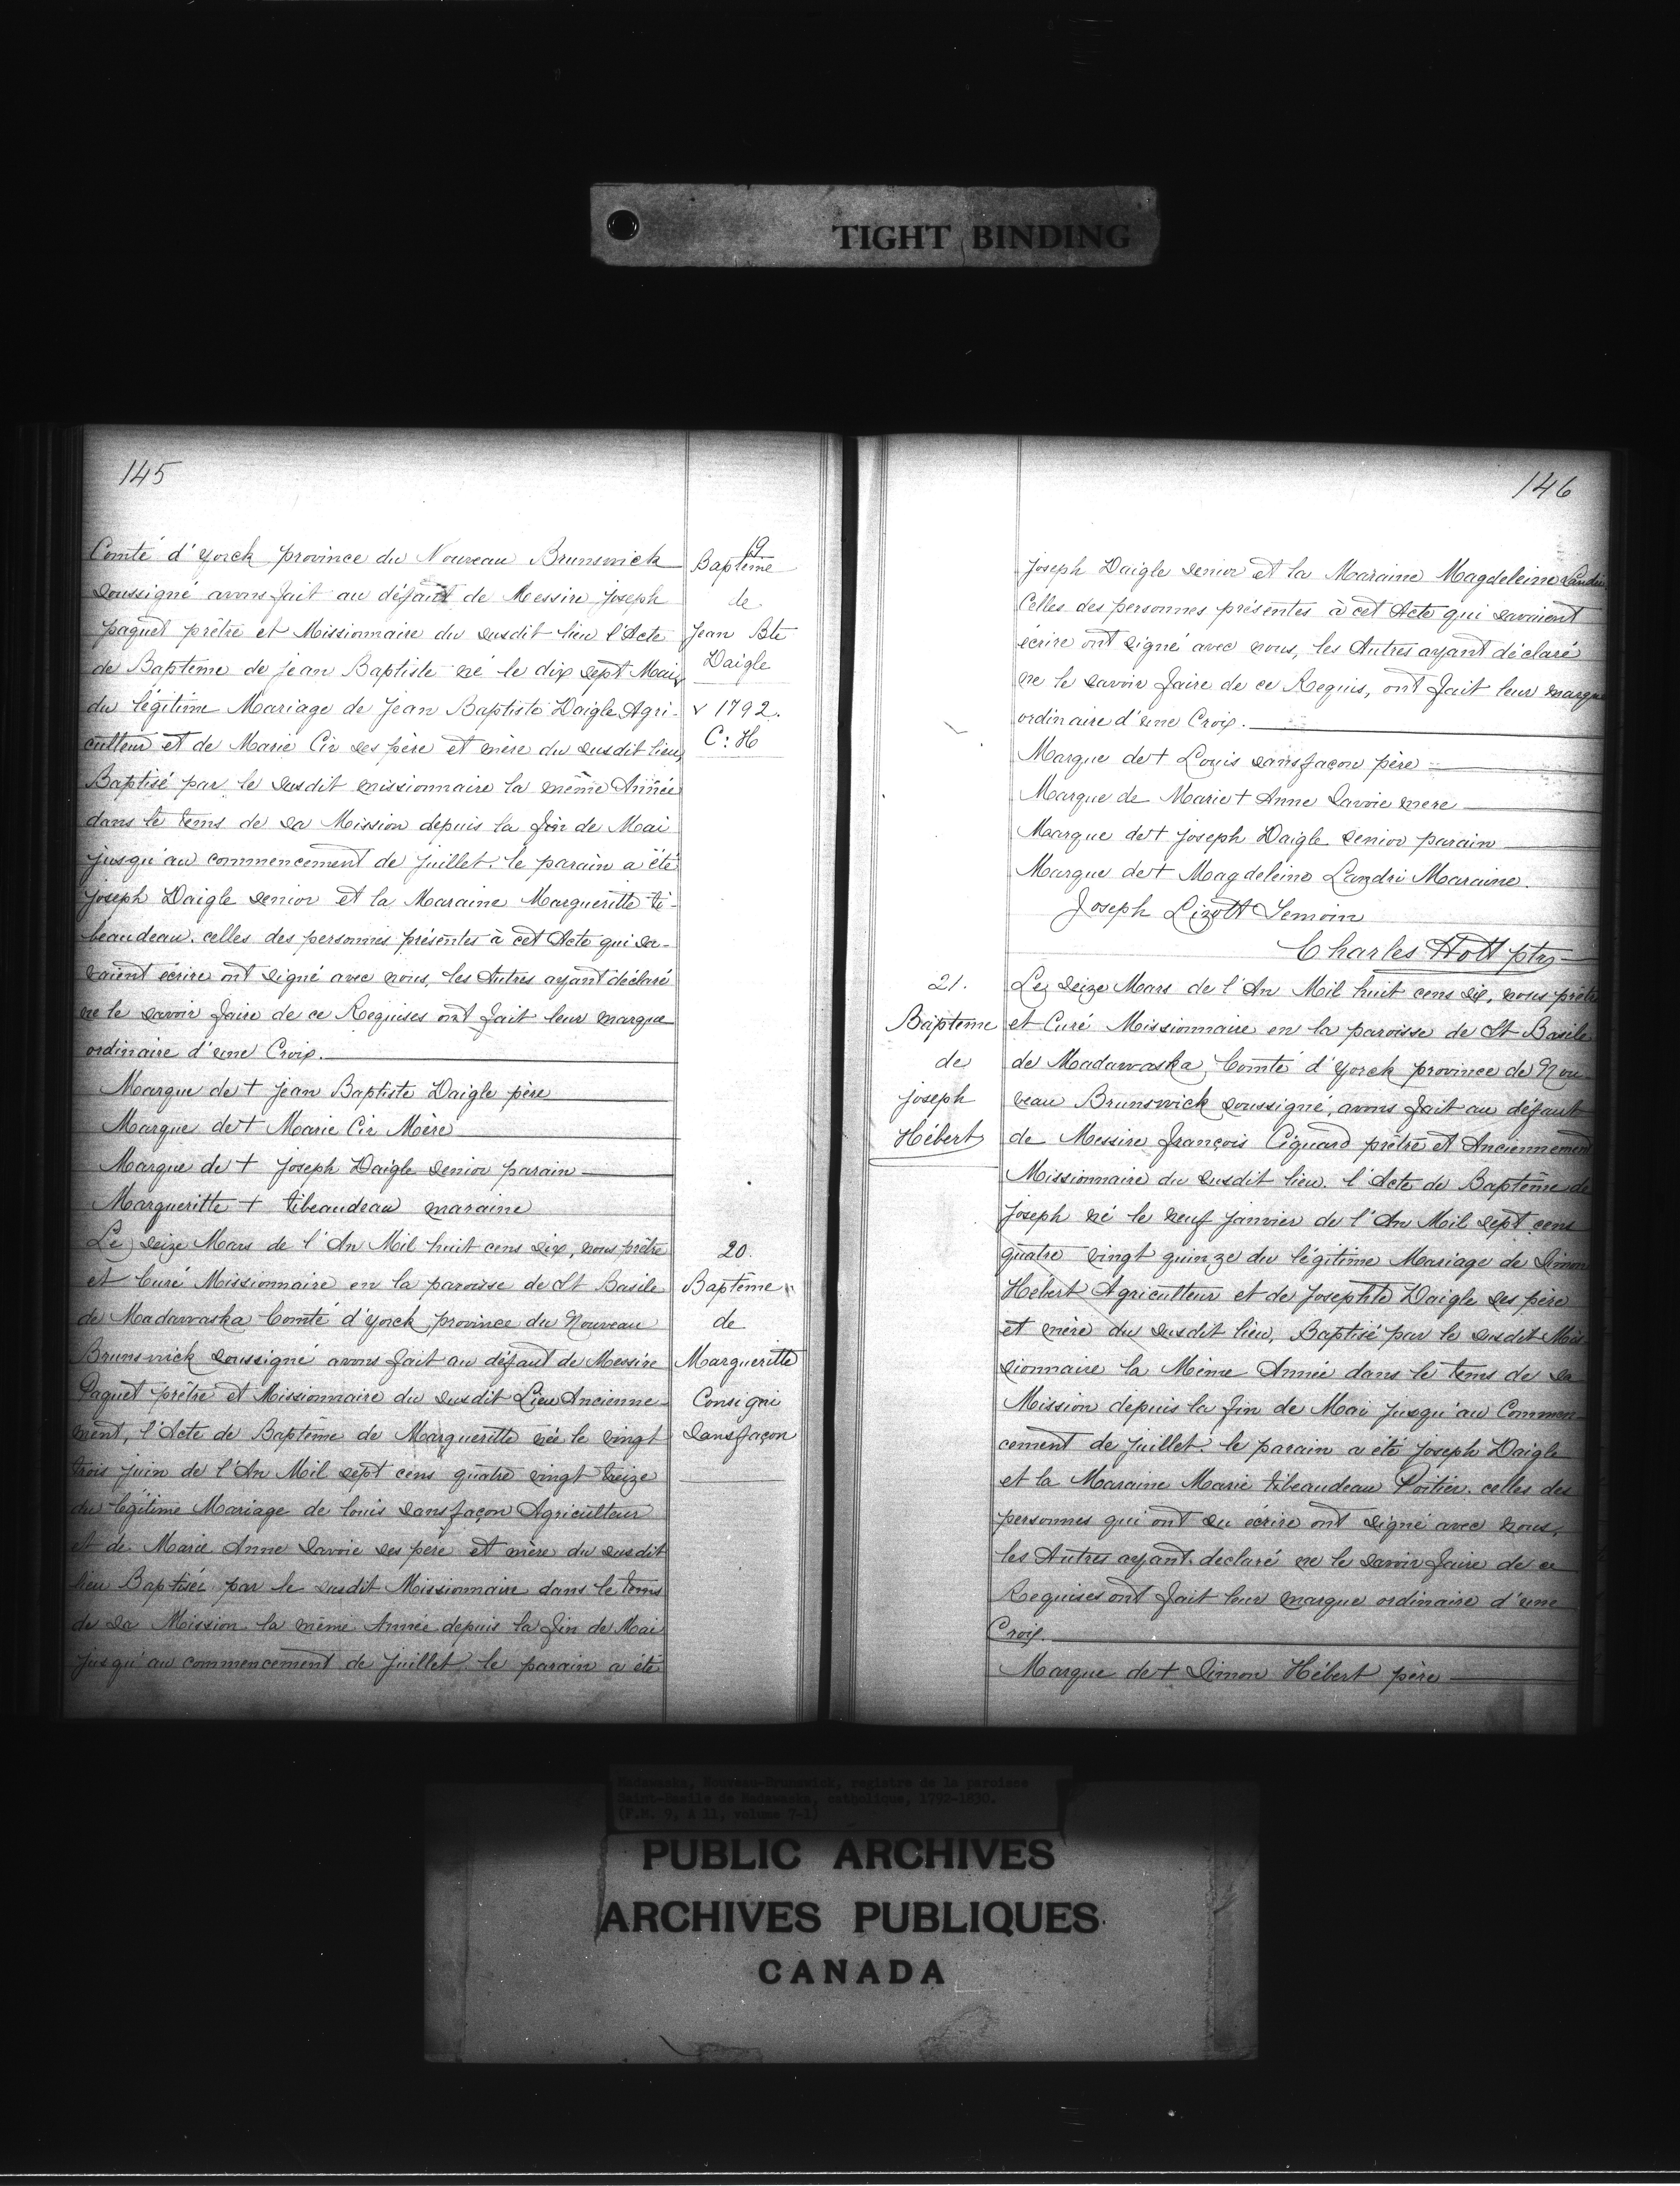 TIGHT BINDING
145
Comté d'yorck province du Nouveau Brunswick
soussigné avons fait au défaut de Messire joseph
paquet prêtre et Missionnaire du susdit lieu l'Acte
de Baptême de jean Baptiste né le dix sept Mai
du légitime Mariage de jean Baptiste Daigle Agri-
culteur et de Marie Cir ses père et mère du susdit lieu,
Baptisé par le susdit missionnaire la même Année
dans le tems de sa Mission depuis la fin de Mai
jusqu'au commencement de juillet. le parain a été
joseph Daigle senior et la Maraine Margueritte ti-
beaudeau. celles des personnes présentes à cet Acte qui sa-
vaient écrire ont signé avec nous, les Autres ayant déclaré
ne le savoir faire de ce Requises ont fait leur marque
ordinaire d'une Croix.
Marque de + jean Baptiste Daigle père
Marque de + Marie Cir Mère
Marque de + joseph Daigle senior parain
Margueritte + tibeaudeau maraine
Le seize Mars de l'An Mil huit cens dix, nous prêtre
et Curé Missionnaire en la paroisse de St Basile
de Madawaska Comté d'yorck province du Nouveau
Brunswick soussigné avons fait au défaut de Messire
Paquet prêtre et Missionnaire du susdit Lieu Ancienne-
ment, l'Acte de Baptême de Margueritte née le vingt
trois juin de l'An Mil sept cens quatre vingt treize
du légitime Mariage de louis sansfaçon Agriculteur
et de Marie Anne Savoie ses père et mère du susdit
lieu Baptisée par le susdit Missionnaire dans le tems
de sa Mission la même Année depuis la fin de Mai
jusqu'au commencement de juillet le parain a été
19
Baptême
de
Jean Bte
Daigle
v 1792.
C: H
20.
Baptême
de
Margueritte
Consigni
Sansfaçon
146
joseph Daigle senior et la Maraine Magdeleine Landri
Celles des personnes présentes à cet Acte qui savaient
écrire ont signé avec nous, les Autres ayant déclaré
ne le savoir faire de ce Requis, ont fait leur marque
ordinaire d'une Croix.
Marque de + Louis sansfaçon père
Marque de Marie + Anne Savoie mere
Marque de + joseph Daigle senior parain
Marque de + Magdeleine Landri Maraine.
Joseph Lizott Temoin
Charles Hott ptre
21.
Baptême
de
joseph
Hébert
Le seize Mars de l'An Mil huit cens dix, nous prêtre
et Curé Missionnaire en la paroisse de St Basile
de Madawaska Comté d'yorck province de Nou
veau Brunswick soussigné, avons fait au défaut
de Messire françois Ciquard prêtre et Anciennement
Missionnaire du susdit lieu. l'Acte de Baptême de
joseph né le neuf janvier de l'An Mil sept cens
quatre vingt quinze du légitime Mariage de Simon
Hebert Agriculteur et de josephte Daigle ses père
et mère du susdit lieu, Baptisé par le susdit Mis
sionnaire la Même Année dans le tems de sa
Mission depuis la fin de Mai jusqu'au Commen
cement de juillet. le parain a été joseph Daigle
et la Maraine Marie tibeaudeau Poitier. celles des
personnes qui ont su écrire ont signé avec nous,
les Autres ayant declaré ne le savoir faire de ce
Requises ont fait leur marque ordinaire d'une
Croix.
Marque de + Simon Hébert père
Madawaska, Nouveau-Brunswick, registre de la paroisse
Saint-Basile de Madawaska, catholique, 1792-1850.
(F.M. 9, A 11, volume 7-1)
PUBLIC ARCHIVES
ARCHIVES PUBLIQUES
CANADA